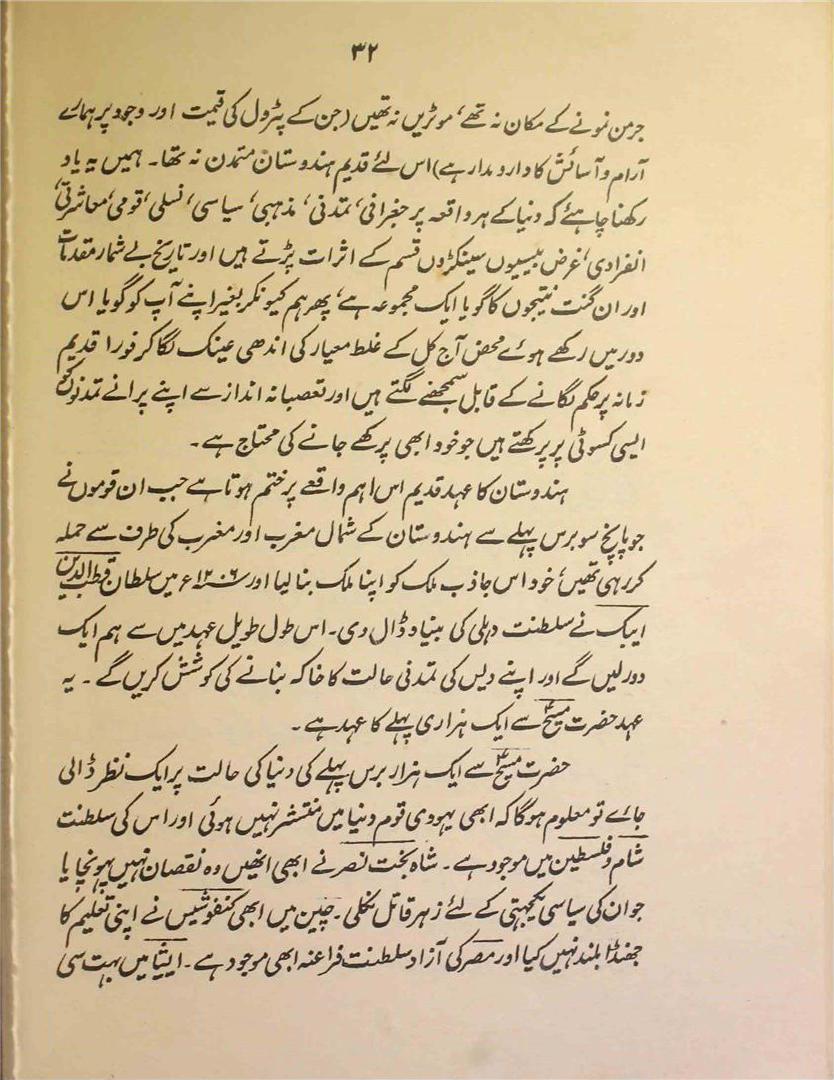 ۳۲
جرمن نمونے کے مکان نہ تھے، موٹریں نہ تھیں (جن کے پٹرول کی قیمت اور وجود پر ہمارے
آرام و آسائش کا دارومدار ہے) اس لئے قدیم ہندوستان متمدن نہ تھا۔ ہمیں یہ یاد
رکھنا چاہئے کہ دنیا کے ہر واقعہ پر جغرافی، تمدنی، مذہبی، سیاسی، نسلی، قومی، معاشرتی،
انفرادی، غرض بیسیوں سینکڑوں قسم کے اثرات پڑتے ہیں اور تاریخ بے شمار مقدمات
اور ان گنت نتیجوں کا گویا ایک مجموعہ ہے، پھر ہم کیونکر بغیر اپنے آپ کو گویا اس
دور میں رکھے ہوے محض آج کل کے غلط معیار کی اندھی عینک لگا کر فوراً قدیم
زمانہ پر حکم لگانے کے قابل سمجھنے لگتے ہیں اور تعصبانہ انداز سے اپنے پرانے تمدنوں کو
ایسی کسوٹی پر پرکھتے ہیں جو خود ابھی پرکھے جانے کی محتاج ہے۔
ہندوستان کا عہد قدیم اس اہم واقعے پر ختم ہوتا ہے جب ان قوموں نے
جو پانچ سو برس پہلے سے ہندوستان کے شمال مغرب اور مغرب کی طرف سے حملہ
کر رہی تھیں، خود اس جاذب ملک کو اپنا ملک بنا لیا اور ۱۲۰۶ء میں سلطان قطب الدین
ایبک نے سلطنت دہلی کی بنیاد ڈال دی۔ اس طول طویل عہد میں سے ہم ایک
دور لیں گے اور اپنے دیس کی تمدنی حالت کا خاکہ بنانے کی کوشش کریں گے۔ یہ
عہد حضرت مسیحؑ سے ایک ہزاری پہلے کا عہد ہے۔
حضرت مسیحؑ سے ایک ہزار برس پہلے کی دنیا کی حالت پر ایک نظر ڈالی
جاے تو معلوم ہو گا کہ ابھی یہودی قوم دنیا میں منتشر نہیں ہوئی اور اس کی سلطنت
شام و فلسطین میں موجود ہے۔ شاہ بخت نصر نے ابھی انھیں وہ نقصان نہیں پہونچایا
جو ان کی سیاسی یکجہتی کے لئے زہر قاتل نکلی۔ چین میں ابھی کنفوشیس نے اپنی تعلیم کا
جھنڈا بلند نہیں کیا اور مصر کی آزاد سلطنت فراعنہ ابھی موجود ہے۔ ایشیا میں بہت سی